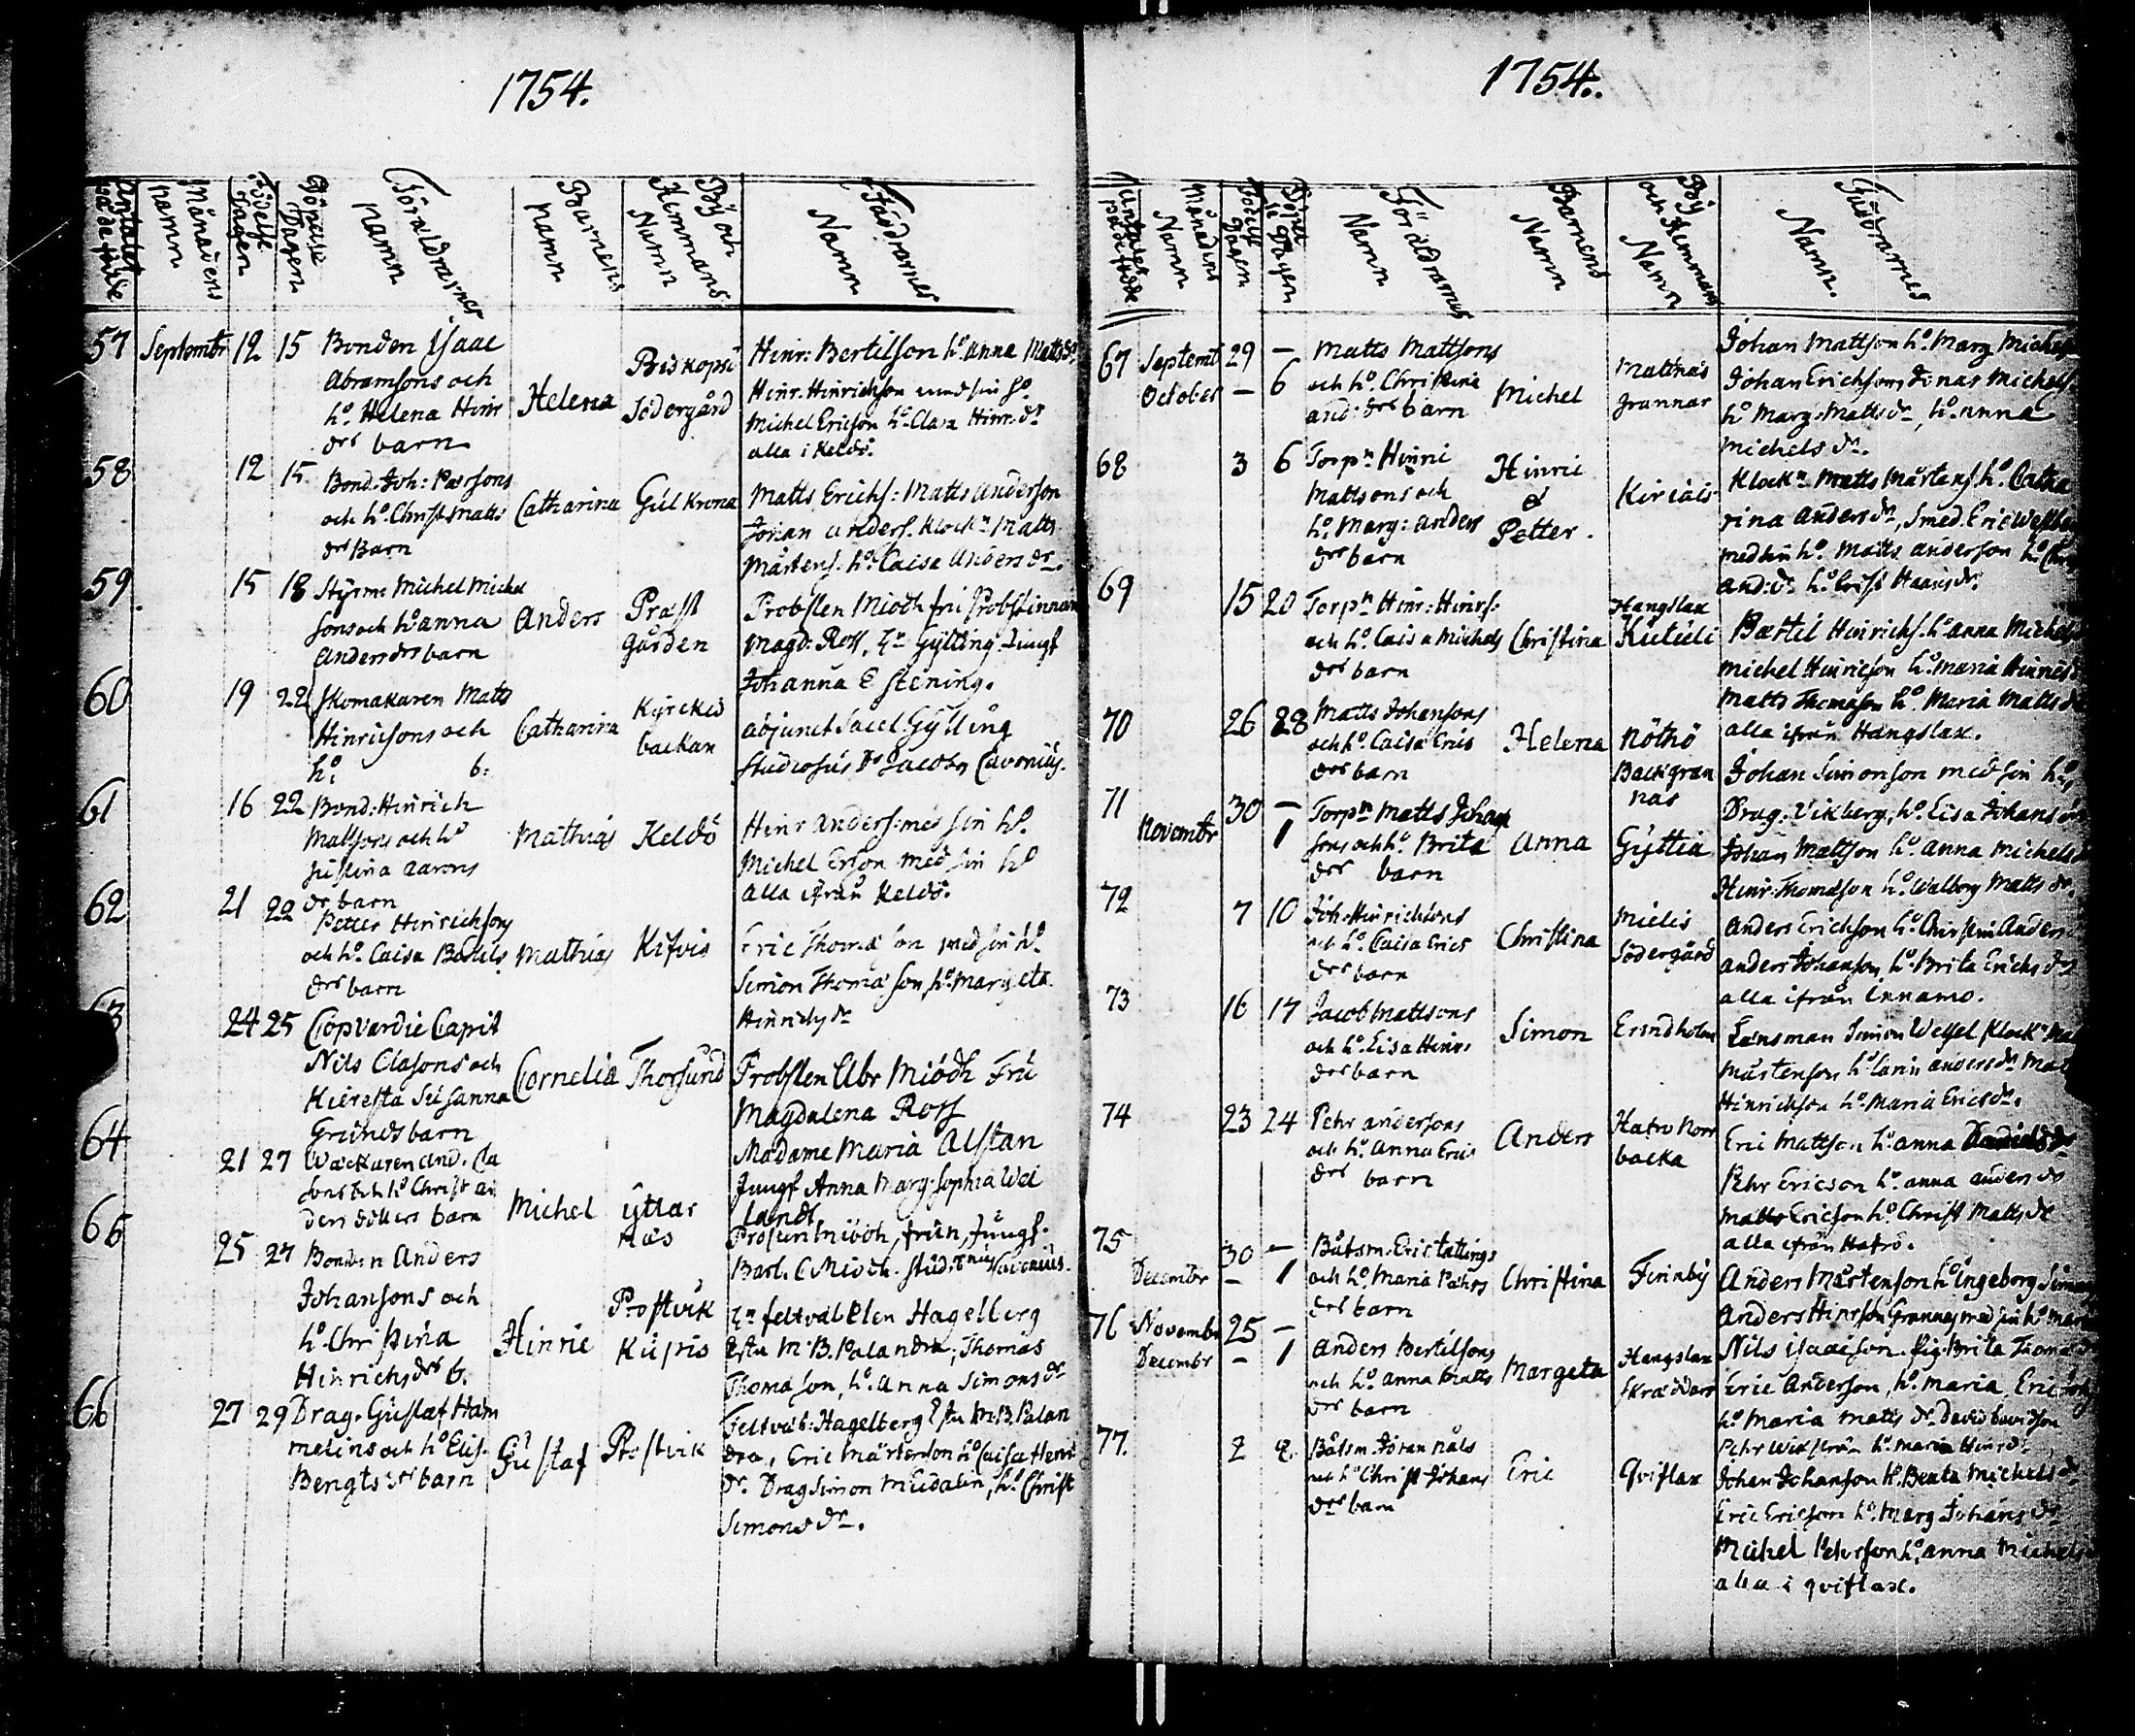 1754.
Antalet på de födde
Månadens namn
Födelse dagen
Döpelse Dagen
Föräldrarnes namn
Barnens namn
By och Hemmans Namn
Fäddrarnes Namn
57 Septembr 12 15 Bonden Isaac
Abramsons och
ho. Helena Hinr
drs barn
Helena
Biskopsö
Södergård
Hinr: Bertilson ho. Anna Matts dr
Hinr. Hinrichson med sin ho
Michel Ericson ho. Clara Hinr. dr
alla i Keldö.
58 12 15 Bond. Joh: Pærsons
och ho. Christ Matts
drs Barn
Catharina
Gul Krona
Matts Erichs: Matts Anderson
Johan Anders. Klockn Matts
Mårtens. ho. Caisa Anders dr.
59 15 18 Styrm Michel Michel
sons och ho Anna
Anders drs barn
Anders
Præst
gården
Probsten Miödh fru Probstinnan
Magd. Ross, Hr Gylling Jungf
Johanna E Stening.
60 19 22 Skomakaren Matts
Hinricsons och
ho. b:
Catharina
Kyrckio
backan
Adjunct Sacel. Gylling
Studiosus Dr Jacobus Cavonius.
61 16 22 Bond: Hinrich
Mattsons och ho
Justina Aarons
dr barn
Mathias
Keldö
Hinr Anders: med sin ho.
Michel Erson med sin ho
alla ifrån Keldö.
62 21 22 Petter Hinrichsons
och ho. Caisa Bertils
drs barn
Mathias
Kifvis
Eric Thomason med sin ho.
Simon Thomason, ho. Margeta
Hinrichs dr
63 24 25 Copvardie Capit
Nils Clasons och
Kieresta Susanna
Grunds barn
Cornelia
Thorsund
Probsten Abr Miödh Fru
Magdalena Ross
Madame Maria Alstan
Jungf Anna Marg: Sophia Wel
landt
64 21 27 Wacktaren And. Cla
sons och ho Christ An
ders dotters barn
Michel
Yttar
næs
Probsten Miödh, frun, Jungf.
Barb. C Miödh. Stud. Cavonius.
65 25 27 Bonden Anders
Johansons och
ho. Christina
Hinrichs drs b.
Hinric
Prostvik
Kupis
Hr feltväbelen Hagelberg
Esta M. B. Palandra, Thomas
Thomason, ho. Anna Simons dr
66 27 29 Drag. Gustaf Ham
melins och ho Elis.
Bengts drs barn
Gustaf
Prostvik
Feltväb: Hagelberg Esta M.B. Palan
dra, Eric Mårtenson ho Caisa Henr
dr. Drag Simon Medalin, ho. Christ
Simons dr.
1754.
Antalet på de födde
Månadens Namn
Födelse dagen
Döpelse Dagen
Föräldrarnes Namn
Barnens Namn
By och Hemmans Namn
Fäddrarnes Namn.
67 Septemb 29 —
October — 6
Matts Mattsons
och ho. Christina
And: drs barn
Michel
Mattnäs
grannas
Johan Mattson ho. Marg Michels
Johan Ericson Jonas Michels
ho Marg: Matts dr, ho. Anna
Michels dr.
68 3 6 Torpn Hinric
Mattsons och
ho. Marg: Anders
drs barn
Hinric
&
Petter.
Kiriais
Klockn Matts Mårtens. ho. Catha
rina Anders dr, Smed. Eric
med sin ho. Matts Anderson ho
And: dr ho. Christ Hans dr.
69 15 20 Torpn Hinr: Hinrs:
och ho. Caisa Michels
drs barn
Christina
Hangslax
Kutuli
Bærtil Hinrichs. ho Anna Michels
Michel Hinricson ho. Maria Hinrics d
Matts Thomason ho. Maria Matts dr
alla ifrån Hangslax.
70 26 28 Matts Johansons
och ho. Caisa Erics
drs barn
Helena
Nöthö
Backgran
nas
Johan Simonson med sin ho,
Drag. Vikberg, ho. Lisa Johans dr
71 30 —
Novembr 1
Torpn Matts Johan
sons och ho. Brita
drs barn
Anna
Gyttia
Johan Mattson ho. Anna Michels
Hinr. Thomason ho. Walborg Matts dr.
72 7 10 Joh. Hinrichsons
och ho. Caisa Erics
drs barn
Christina
Mielis
Södergård
Anders Erickson ho. Christin Anders
Anders Johanson, ho. Brita Erichs dr
alla ifrån Innamo.
73 16 17 Jacob Mattsons
och ho. Lisa Hinrs
drs barn
Simon
Ernholm
Länsman Simon Wessel Klockn
Mårtenson ho Carin Anders dr
Hinrichson ho. Maria Erics dr.
74 23 24 Pehr Andersons
och ho. Anna Erics
drs barn
Anders
Hatro Norr
backa
Eric Mattson ho Anna Davids dr
Pehr Ericson ho. Anna Anders dr
Matts Ericson ho. Christ Matts dr
alla ifrån Hatrö.
75 30 —
Decembr — 1
Båtsm. Eric Tallings
och ho. Maria Pährs
drs barn
Christina
Finnby
Anders Mårtenson ho. Ingeborg Simons
Anders Hinrson Grannas med sin ho
76 Novembr 25 —
Decembr — 1
Anders Bertilsons
och ho. Anna Matts
drs barn
Margeta
Hangslax
Skræddars
Nils Isaacson. Pig. Brita Thomæ dr
Eric Anderson, ho. Maria Erics
ho Maria Matts dr David Davidson
Pehr Wikström ho. Maria Hinrs dr
77. 2 2. Båtsm. Johan Nåls
och ho Christ Johans
drs barn
Eric
Qviflax
Johan Johanson ho. Beata Michels dr
Eric Ericson ho. Marg Johans dr
Michel Pehrson ho, Anna Michels
alla i qviflax.